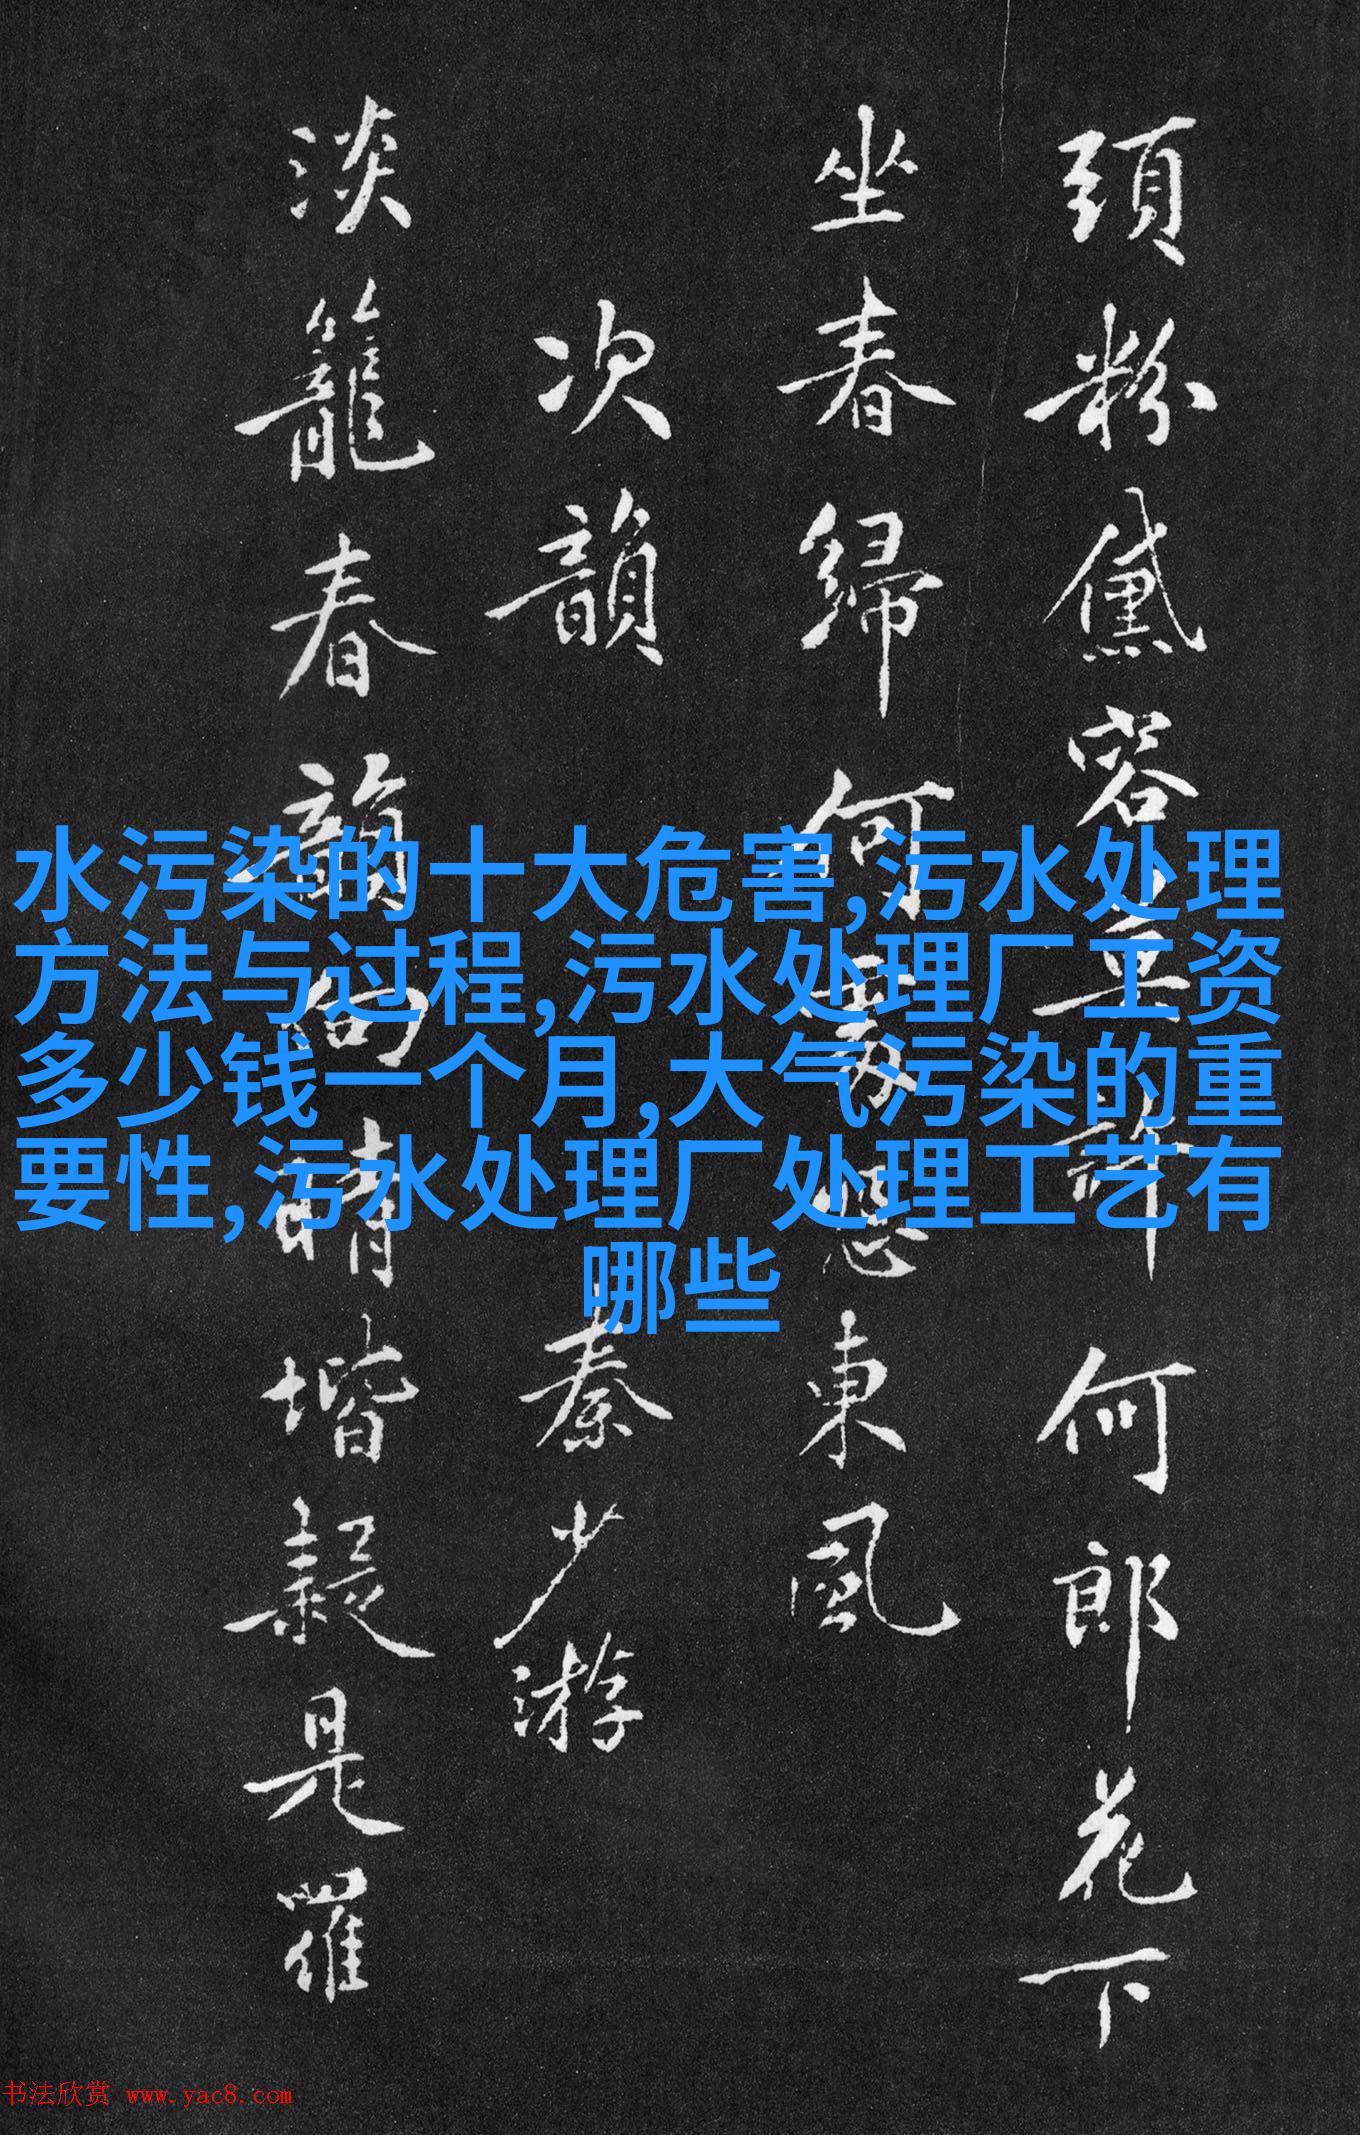 頭粉黛容宜許何郎花下
坐春歸何事怨東風
次韻
秦少游
淡籠春韻向晴堦疑是羅
水污染的十大危害,污水处理
方法与过程,污水处理厂工资
多少钱一个月,大气污染的重
要性,污水处理厂处理工艺有
哪些
书法欣赏 www.yac8.com